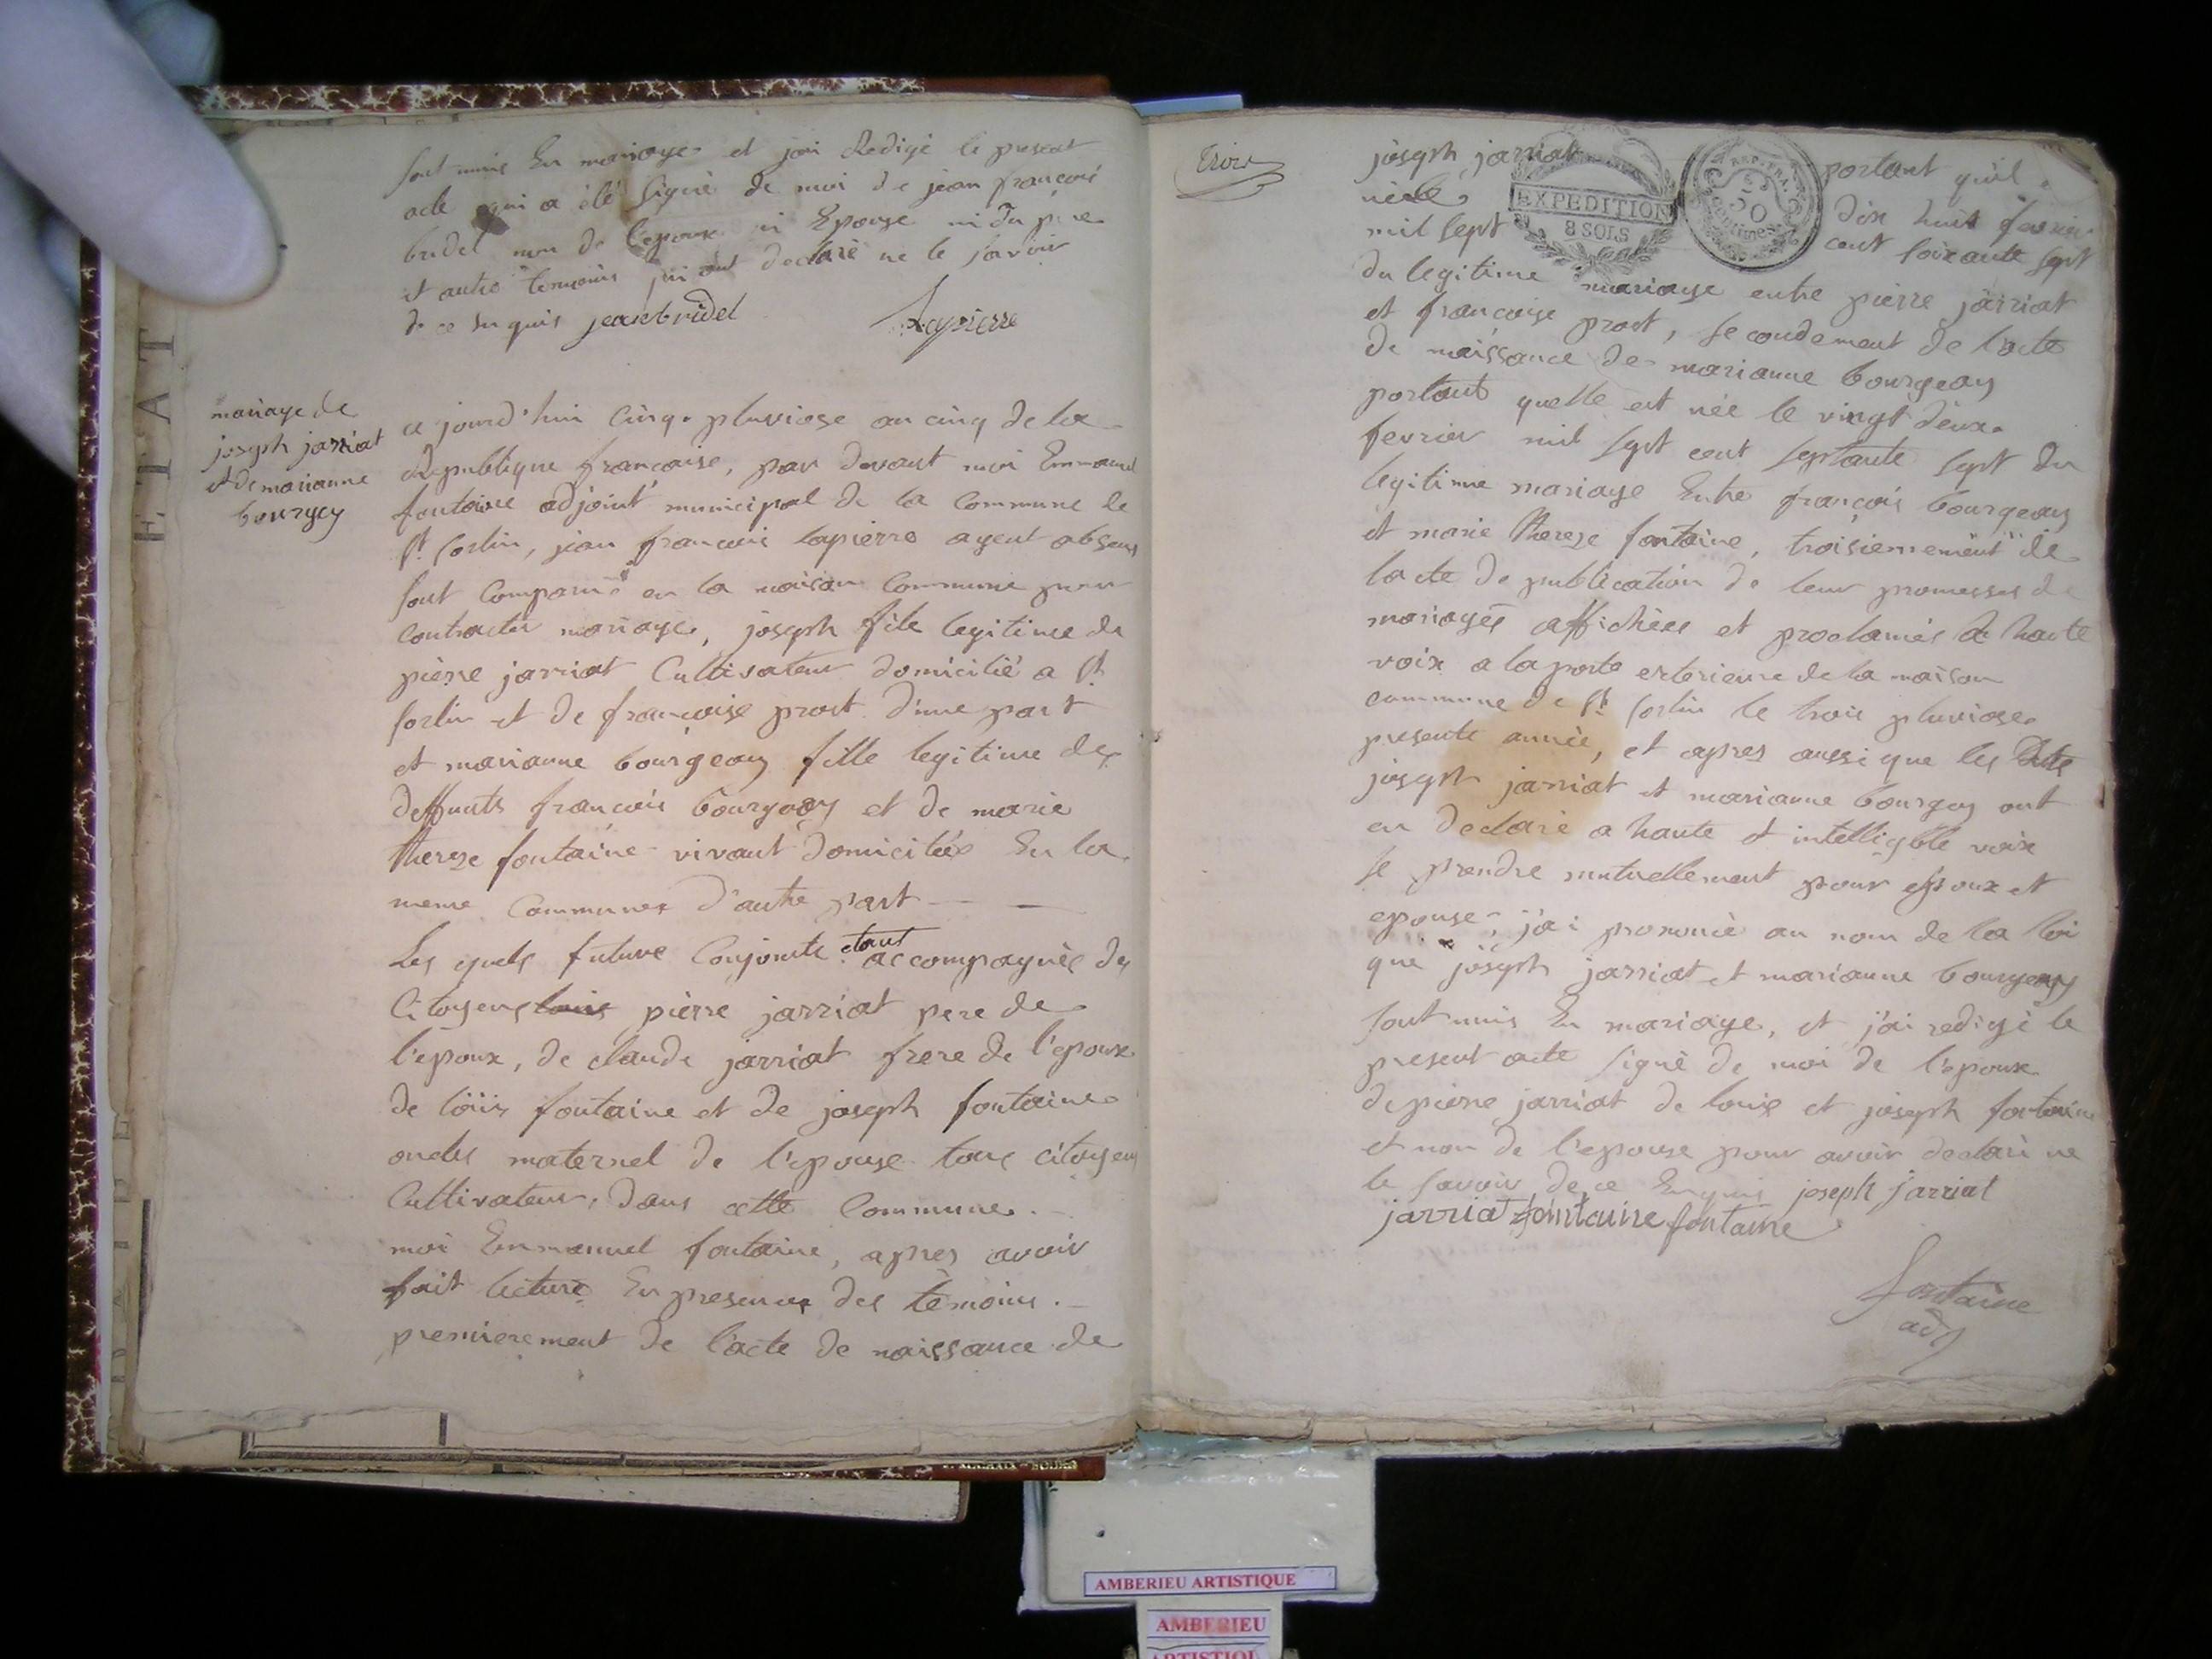 sont unis En mariage et jai Redigé le present
acte qui a été signé de moi de jean françois
bridel non de l'epoux ni Epouse ni du pere
et autre temoins qui ont declaré ne le savoir
de ce Enquis jean bridel Lapierre
mariage de
joseph jarriat
et de marianne
bourgey
ce jourd'hui Cinq pluviose an cinq de la
Republique francaise, par devant moi Emmanuel
fontaine adjoint municipal de la Commune de
St sorlin, jean francois lapierre agent absent
sont Comparus en la maison Commune pour
Contracter mariage, joseph fils legitime de
pierre jarriat Cultivateur domicilié a St
sorlin et de francoise prost d'une part
et marianne bourgeay fille legitime des
deffunts francois bourgeay et de marie
therese fontaine vivant domiciliés En la
meme Commune d'autre part
Les quels future Conjoints etant accompagnés des
Citoyens louis pierre jarriat pere de
l'epoux, de claude jarriat frere de l'epoux
de loüis fontaine et de joseph fontaine
oncles maternel de l'epouse tous citoyens
Cultivateur, dans cette Commune.
moi Emmanuel fontaine, apres avoir
fait lecture En presences des temoins.
premierement de l'acte de naissance de
Trois
joseph jarriat portant quil
dix huit fevrier
mil sept cent soixante sept
EXPEDITION
8 SOLS
REP. FRA.
50
centimes
du legitime mariage entre pierre jarriat
et francoise prost, secondement de l'acte
de naissance de marianne bourgeay
portant quelle est née le vingt deux
fevrier mil sept cent septante sept du
legitime mariage Entre francois bourgeay
et marie therese fontaine, troisiemement de
lacte de publication de leur promesses de
mariages affichées et proclamés a haute
voix a la porte exterieure de la maison
commune de St sorlin le trois pluviose
presente année, et apres aussi que les dits
joseph jarriat et marianne bourgey ont
eu declaré a haute et intelligible voix
se prendre mutuellement pour epoux et
epouse, j'ai prononcé au nom de la loi
que joseph jarriat et marianne bourgeay
sont unis En mariage, et j'ai redigé le
present acte signé de moi de l'epoux
de pierre jarriat de louis et joseph fontaine
et non de l'epouse pour avoir declaré ne
le savoir de ce Enquis joseph jarriat
jarriat fontaine fontaine
fontaine
adj
ETAT
AMBERIEU ARTISTIQUE
AMBERIEU
ARTISTIQUE